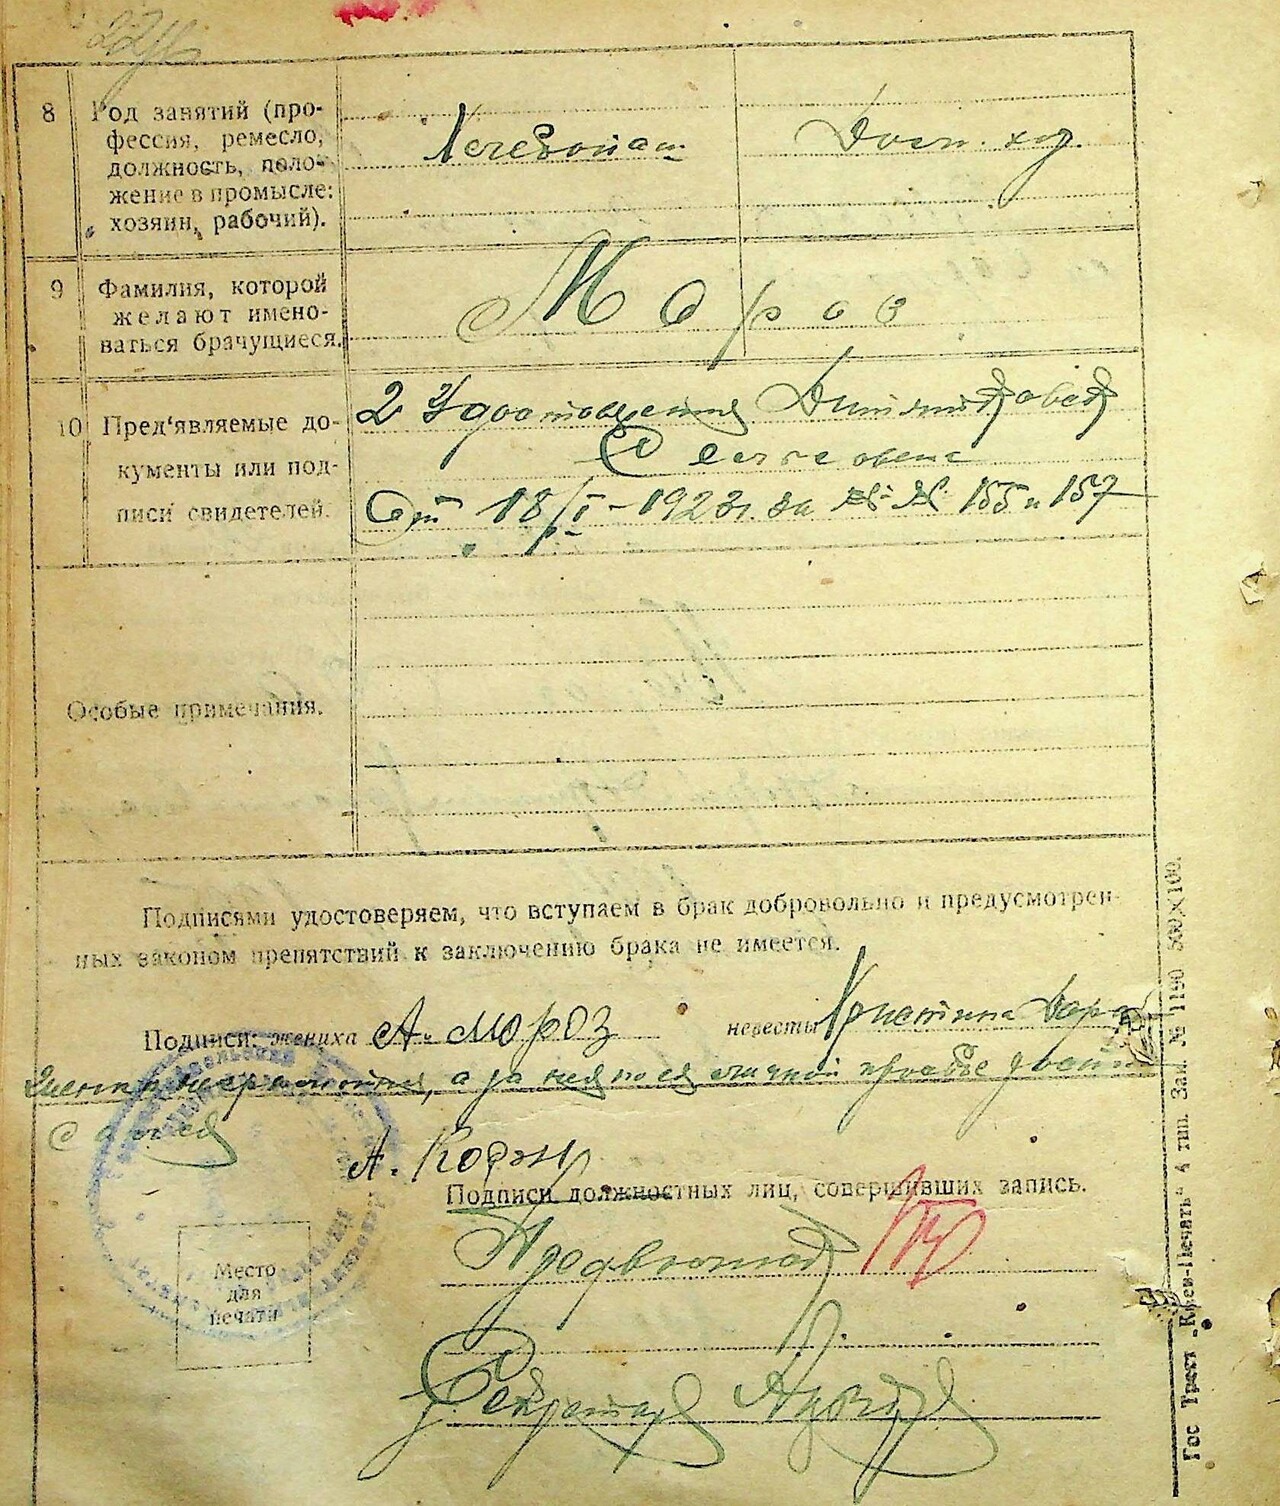 8
Род занятий (про-
фессия, ремесло,
должность, поло-
жение в промысле:
хозяин, рабочий).
Хлебопаш.
Дом. хоз.
9
Фамилия, которой
желают имено-
ваться брачущиеся.
Мороз
10
Пред'являемые до-
кументы или под-
писи свидетелей.
2 Удостоверения
От 18/I-1923г. за №№ 155 и 157
Особые примечания.
Подписями удостоверяем, что вступаем в брак добровольно и предусмотрен-
ных законом препятствий к заключению брака не имеется.
Подписи: жениха А. Мороз невесты Христина
а за нея по ея личной прозьбе
А. Кодэм
Подписи должностных лиц, совершивших запись.
Место
для
печати
Секретарь
Гос Трест „Киев-Печать" 4 тип. Зак. № 1190 500×100.